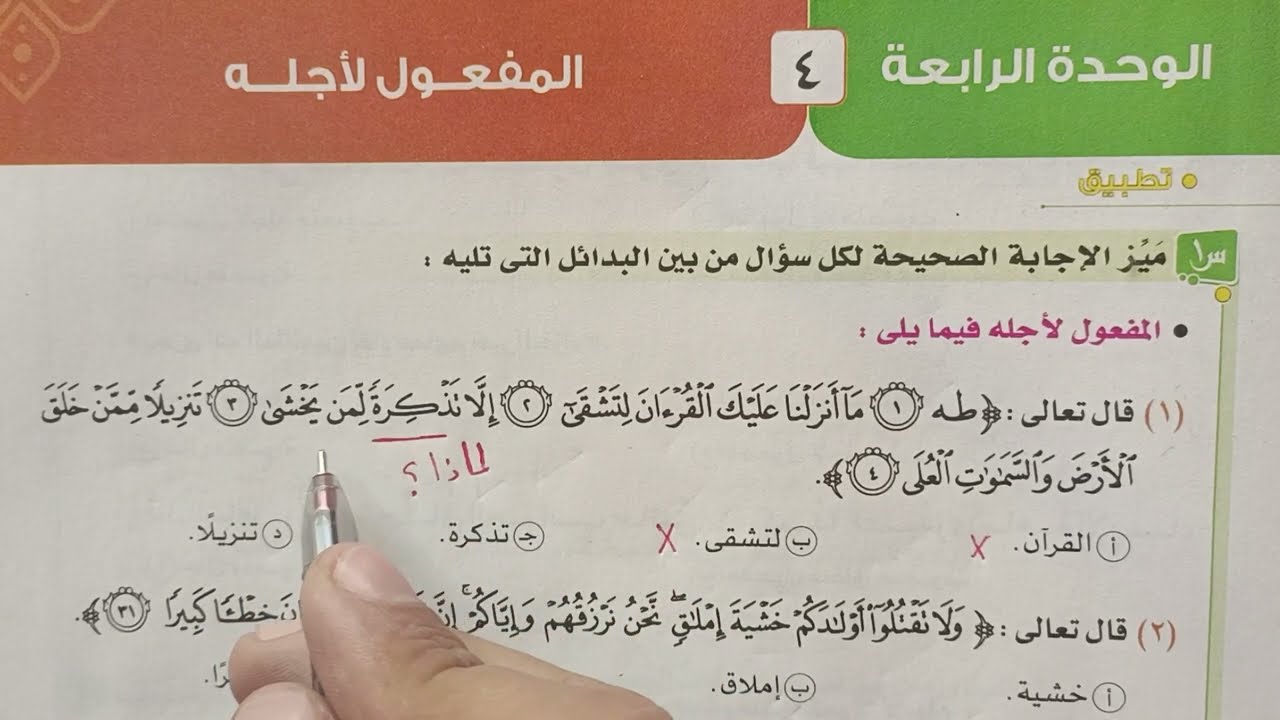 الوحدة الرابعة ٤ المفعول لأجله
• تطبيق
س١ مَيِّز الإجابة الصحيحة لكل سؤال من بين البدائل التى تليه :
• المفعول لأجله فيما يلى :
(١) قال تعالى : ﴿ طه ١ مَآ أَنزَلْنَا عَلَيْكَ ٱلْقُرْءَانَ لِتَشْقَىٰٓ ٢ إِلَّا تَذْكِرَةً لِّمَن يَخْشَىٰ ٣ تَنزِيلًا مِّمَّنْ خَلَقَ
ٱلْأَرْضَ وَٱلسَّمَٰوَٰتِ ٱلْعُلَى ٤ ﴾.
لماذا ؟
أ القرآن. X ب لتشقى. X جـ تذكرة. د تنزيلًا.
(٢) قال تعالى : ﴿ وَلَا تَقْتُلُوٓا۟ أَوْلَٰدَكُمْ خَشْيَةَ إِمْلَٰقٍ ۖ نَّحْنُ نَرْزُقُهُمْ وَإِيَّاكُمْ ۚ خِطْـًٔا كَبِيرًا ٣١ ﴾.
أ خشية. ب إملاق.